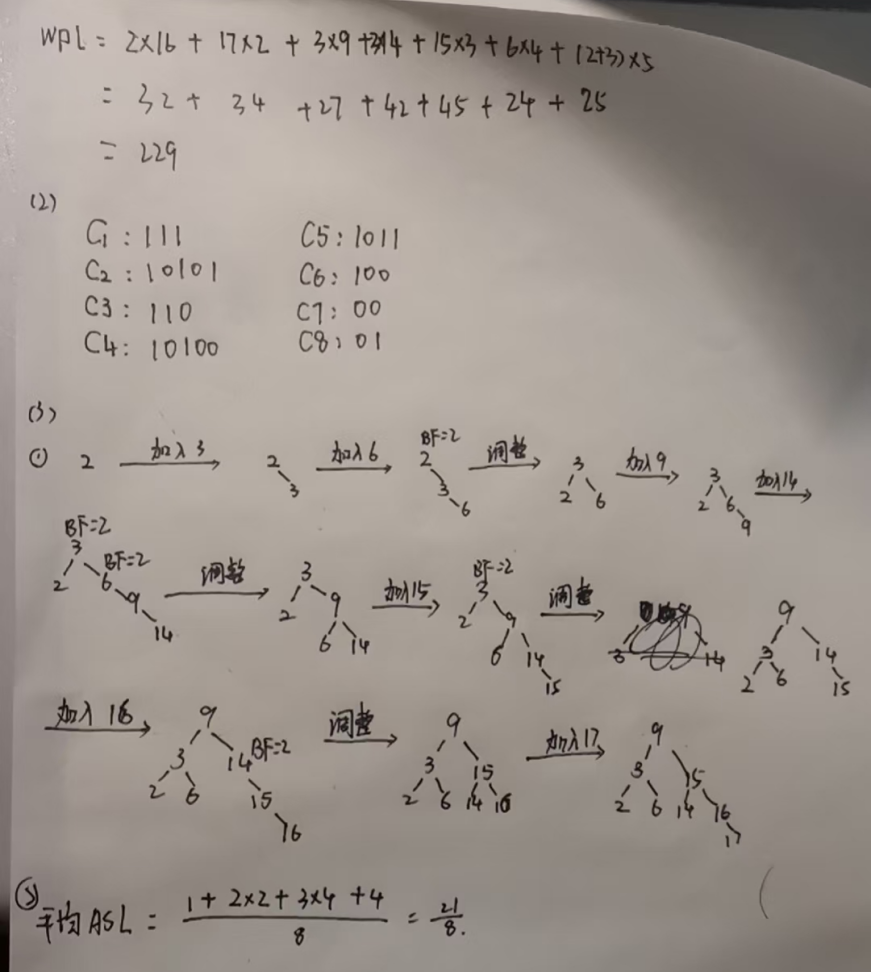 WPL = 2×16 + 17×2 + 3×9 + 3×14 + 15×3 + 6×4 + (2+3)×5
= 32 + 34 + 27 + 42 + 45 + 24 + 25
= 229
(2)
C1 : 111 C5 : 1011
C2 : 10101 C6 : 100
C3 : 110 C7 : 00
C4 : 10100 C8 : 01
(3)
① 2 加入3 2 3 加入6 BF=2 2 3 6 调整 3 2 6 加入9 3 2 6 9 加入14
BF=2 3 BF=2 2 6 9 14 调整 3 2 9 6 14 加入15 BF=2 3 2 9 6 14 15 调整 3 14 9 3 14 2 6 15
加入16 9 3 14 BF=2 2 6 15 16 调整 9 3 15 2 6 14 16 加入17 9 3 15 2 6 14 16 17
平均ASL = 1 + 2×2 + 3×4 + 4 / 8 = 21/8.